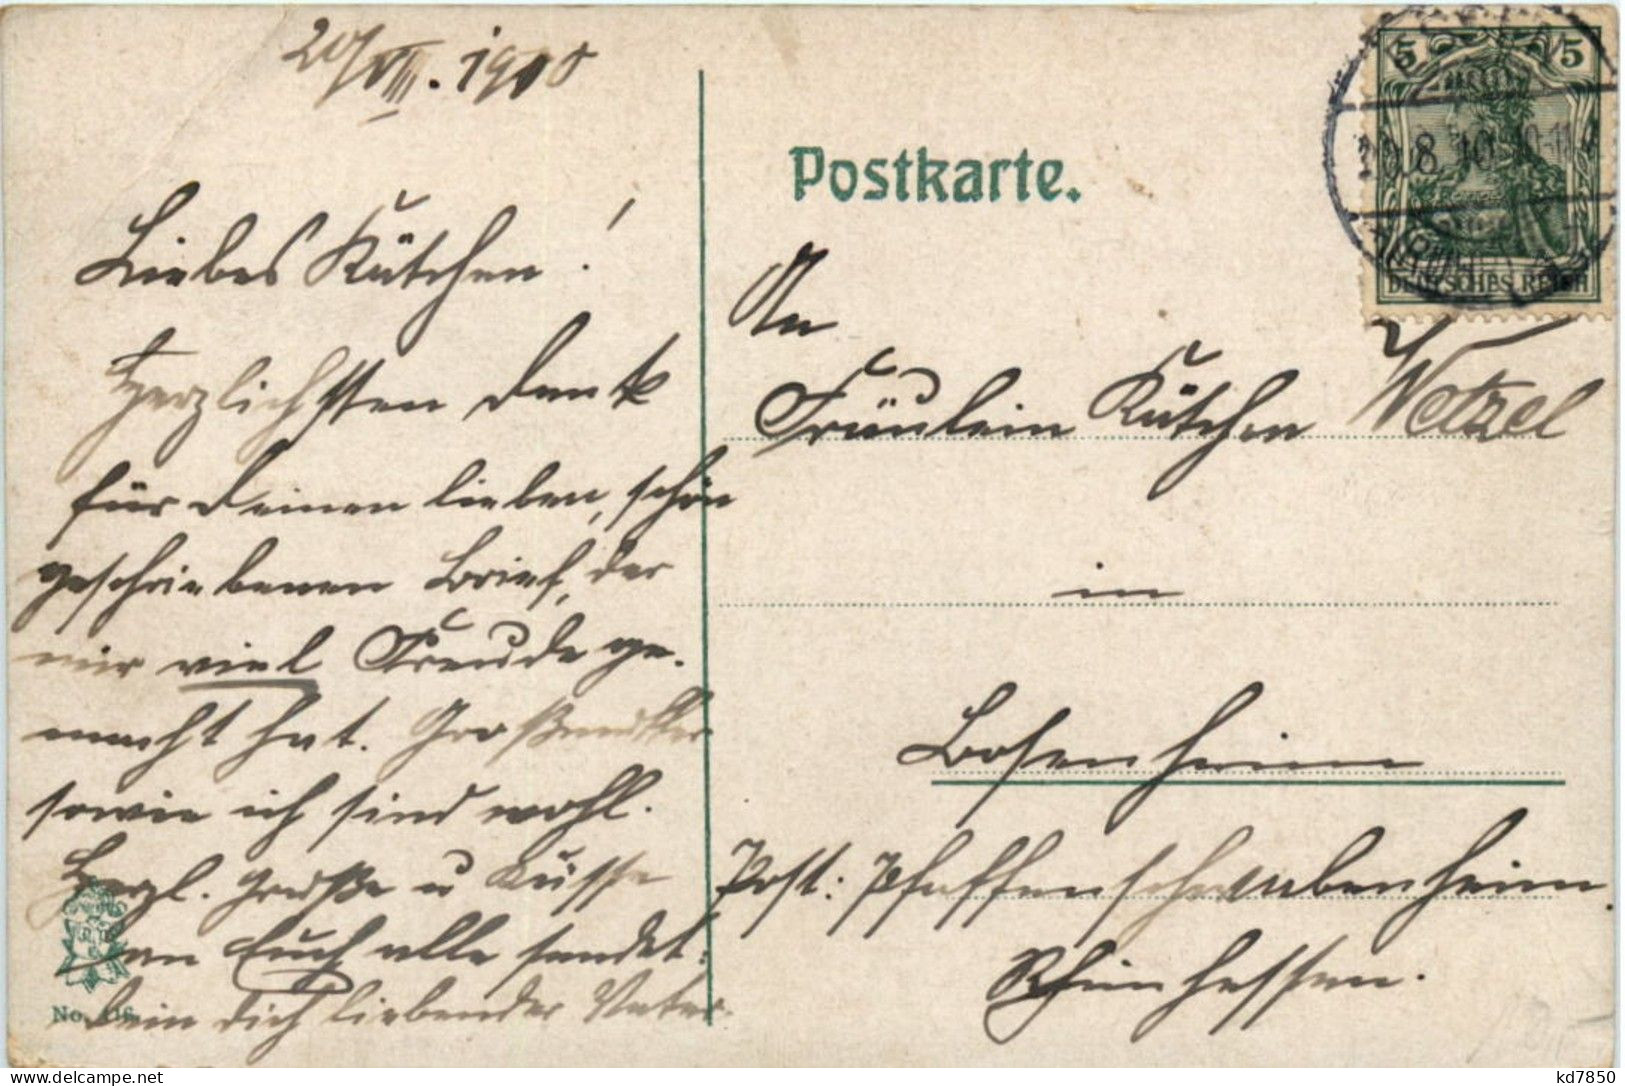 20/VIII. 1910
Liebes Kätchen!
Herzlichsten Dank
für Deinen lieben, schön
geschriebenen Brief, der
mir viel Freude ge-
macht hat. Großmutter
sowie ich sind wohl.
Herzl. Grüße u Küsse
an Euch alle sendet:
Dein Dich liebender Vater.
No. 116
Postkarte.
5 5
20.8.10.10-11
(RUHR)
DEUTSCHES REICH
An
Fräulein Kätchen Wetzel
in
Bosenheim
Post: Pfaffenschwabenheim
Rheinhessen.
kd7850